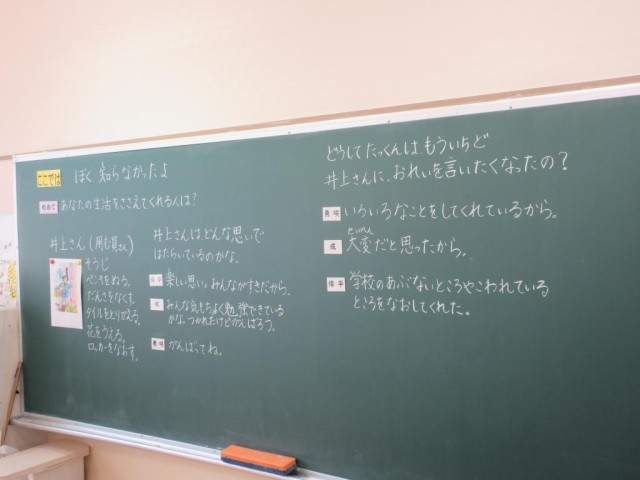 ここでは ぼく 知らなかったよ
めあて あなたの生活をささえてくれる人は?
井上さん(用む員さん)
そうじ
ペンキをぬる。
だんさをなくす。
タイルをとりかえる。
花をうえる。
ロッカーをなおす。
井上さんは、どんな思いで
はたらいているのかな。
楽しい思い。みんながすきだから。
みんな気もちよく勉強できている
かな。つかれたけどがんばろう。
がんばってね。
どうしてたっくんは もういちど
井上さんに、おれいを言いたくなったの?
いろいろなことをしてくれているから。
たいへん
成 大変だと思ったから。
学校のあぶないところやこわれている
ところをなおしてくれた。